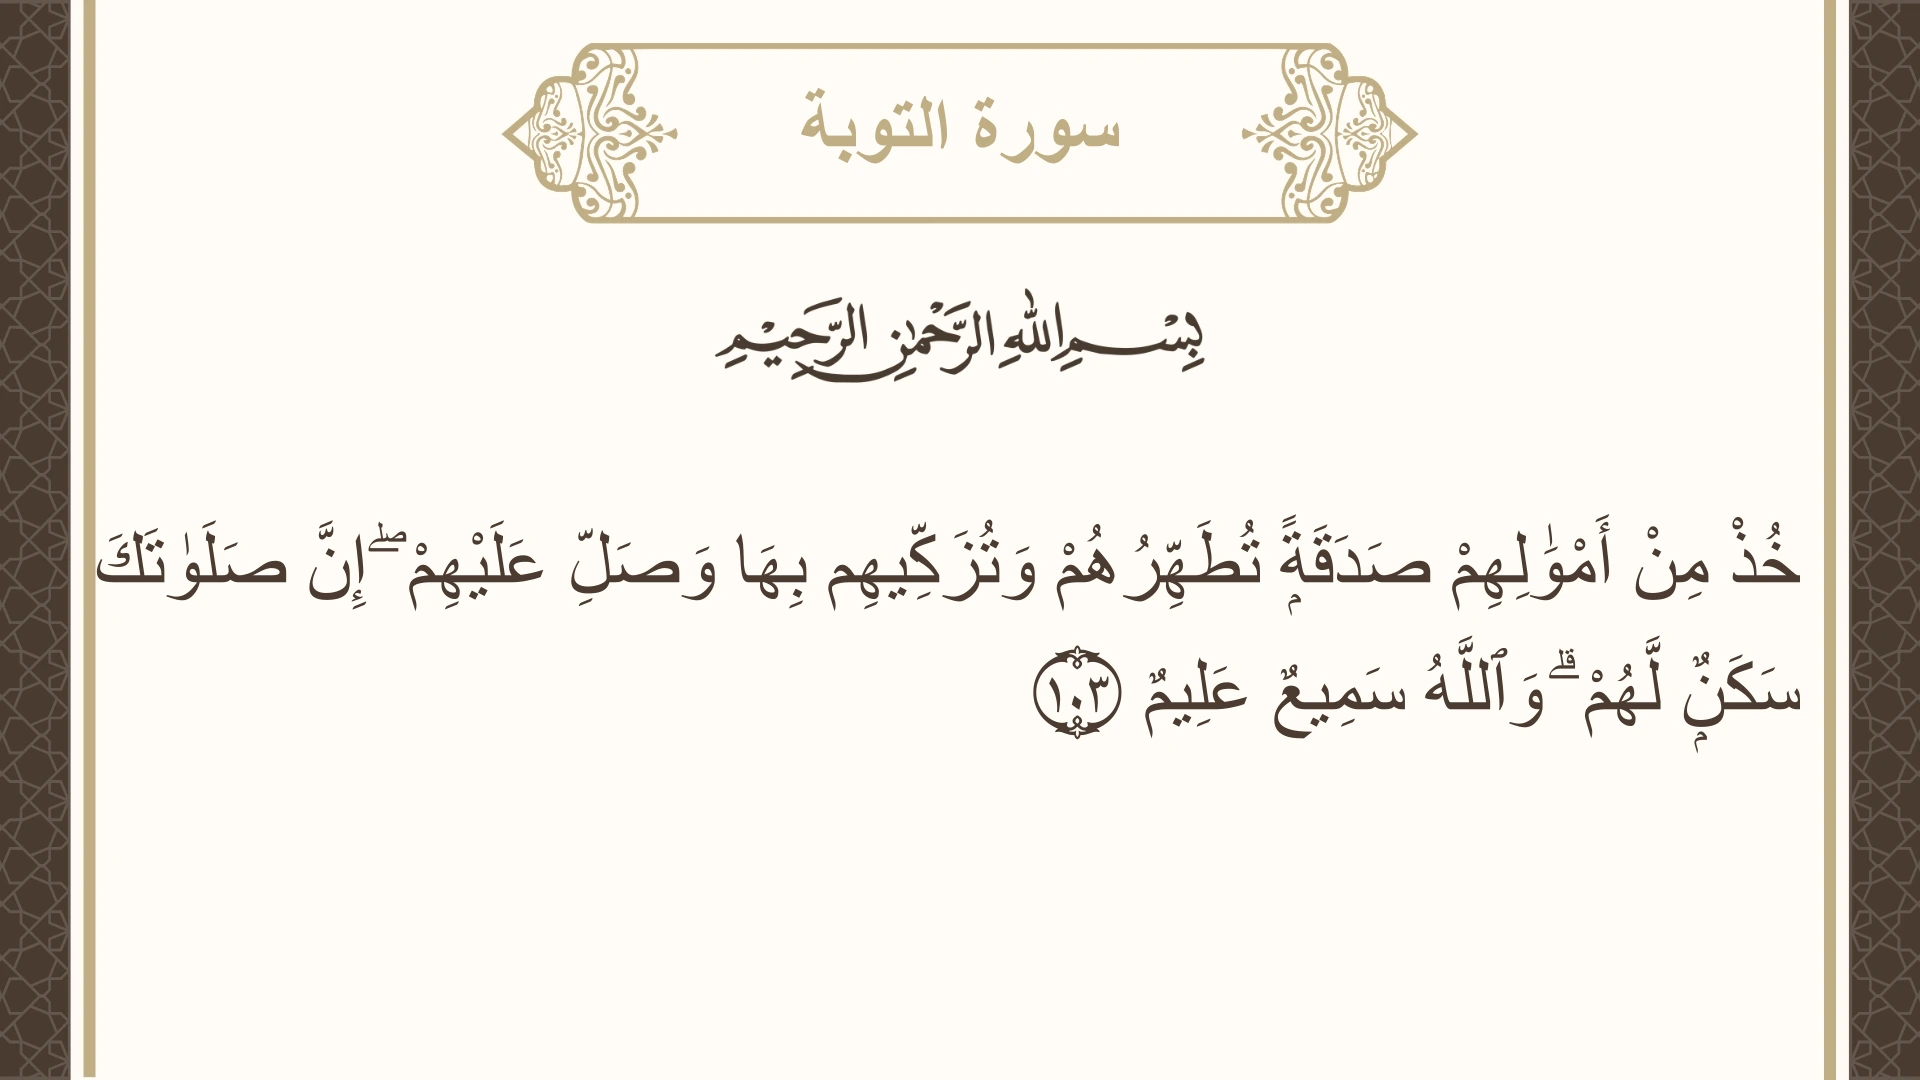 سورة التوبة
بِسْمِ اللهِ الرَّحْمٰنِ الرَّحِيْمِ
خُذْ مِنْ أَمْوَٰلِهِمْ صَدَقَةًۭ تُطَهِّرُهُمْ وَتُزَكِّيهِم بِهَا وَصَلِّ عَلَيْهِمْ ۖ إِنَّ صَلَوٰتَكَ
سَكَنٌۭ لَّهُمْ ۗ وَٱللَّهُ سَمِيعٌ عَلِيمٌ ١٠٣